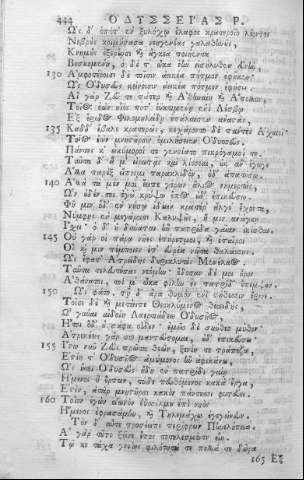 444 ΟΔΥΣΣΕΙΑΣ Ρ.
Ὡς δ' ὁπότ' ἐν ξυλόχῳ ἔλαφος κρατεροῖο λέοντος
Νεβροὺς κοιμήσασα νεηγενέας γαλαθηνοὺς,
Κνημοὺς ἐξερέῃσι καὶ ἄγκεα ποιήεντα
Βοσκομένη, ὁ δέ τ' ὦκα ἑὴν εἰσήλυθεν εὐνὴν,
130 Ἀμφοτέροισι δὲ τοῖσιν ἀεικέα πότμον ἐφῆκεν·
Ὣς Ὀδυσεὺς κείνοισιν ἀεικέα πότμον ἐφήσει.
Αἲ γὰρ Ζεῦ τε πάτερ καὶ Ἀθηναίη καὶ Ἄπολλον,
Τοῖος ἐὼν οἷός ποτ' ἐϋκτιμένῃ ἐνὶ Λέσβῳ
Ἐξ ἔριδος Φιλομηλείδῃ ἐπάλαισεν ἀναστὰς,
135 Κὰδ δ' ἔβαλε κρατερῶς, κεχάροντο δὲ πάντες Ἀχαιοί·
Τοῖος ἐὼν μνηστῆρσιν ὁμιλήσειεν Ὀδυσσεύς.
Πάντες κ' ὠκύμοροί τε γενοίατο πικρόγαμοί τε.
Ταῦτα δ' ἅ μ' εἰρωτᾷς καὶ λίσσεαι, οὐκ ἂν ἔγωγε
Ἄλλα παρὲξ εἴποιμι παρακλιδὸν, οὐδ' ἀπατήσω·
140 Ἀλλὰ τὰ μέν μοι ἔειπε γέρων ἅλιος νημερτὴς,
Τῶν οὐδέν τοι ἐγὼ κρύψω ἔπος οὐδ' ἐπικεύσω.
Φῆ μιν ὅγ' ἐν νήσῳ ἰδέειν κρατέρ' ἄλγε' ἔχοντα,
Νύμφης ἐν μεγάροισι Καλυψοῦς, ἥ μιν ἀνάγκῃ
Ἴσχει· ὁ δ' οὐ δύναται ἣν πατρίδα γαῖαν ἱκέσθαι·
145 Οὐ γάρ οἱ πάρα νῆες ἐπήρετμοι, καὶ ἑταῖροι
Οἵ κέν μιν πέμποιεν ἐπ' εὐρέα νῶτα θαλάσσης.
Ὣς ἔφατ' Ἀτρείδης δουρικλυτὸς Μενέλαος.
Ταῦτα τελευτήσας νεόμην· ἔδοσαν δέ μοι οὖρον
Ἀθάνατοι, τοί μ' ὦκα φίλην ἐς πατρίδ' ἔπεμψαν.
150 Ὣς φάτο, τῇ δ' ἄρα θυμὸν ἐνὶ στήθεσσιν ὄρινε.
Τοῖσι δὲ καὶ μετέειπε Θεοκλύμενος θεοειδὴς,
Ὦ γύναι αἰδοίη Λαερτιάδεω Ὀδυσῆος,
Ἤτοι ὅγ' οὐ σάφα οἶδεν· ἐμεῖο δὲ σύνθεο μῦθον·
Ἀτρεκέως γάρ σοι μαντεύσομαι, οὐδ' ἐπικεύσω·
155 Ἴστω νῦν Ζεὺς πρῶτα θεῶν, ξενίη τε τράπεζα,
Ἱστίη τ' Ὀδυσῆος ἀμύμονος ἣν ἀφικάνω,
Ὡς ἤτοι Ὀδυσεὺς ἤδη ἐν πατρίδι γαίῃ
Ἥμενος ἢ ἕρπων, τάδε πευθόμενος κακὰ ἔργα,
Ἔστιν, ἀτὰρ μνηστῆρσι κακὸν πάντεσσι φυτεύει.
160 Τοῖον ἐγὼν οἰωνὸν ἐϋσσέλμου ἐπὶ νηὸς
Ἥμενος ἐφρασάμην, καὶ Τηλεμάχῳ ἐγεγώνευν.
Τὸν δ' αὖτε προσέειπε περίφρων Πηνελόπεια,
Αἲ γὰρ τοῦτο ξεῖνε ἔπος τετελεσμένον εἴη·
Τῷ κε τάχα γνοίης φιλότητά τε πολλά τε δῶρα
165 Ἐξ